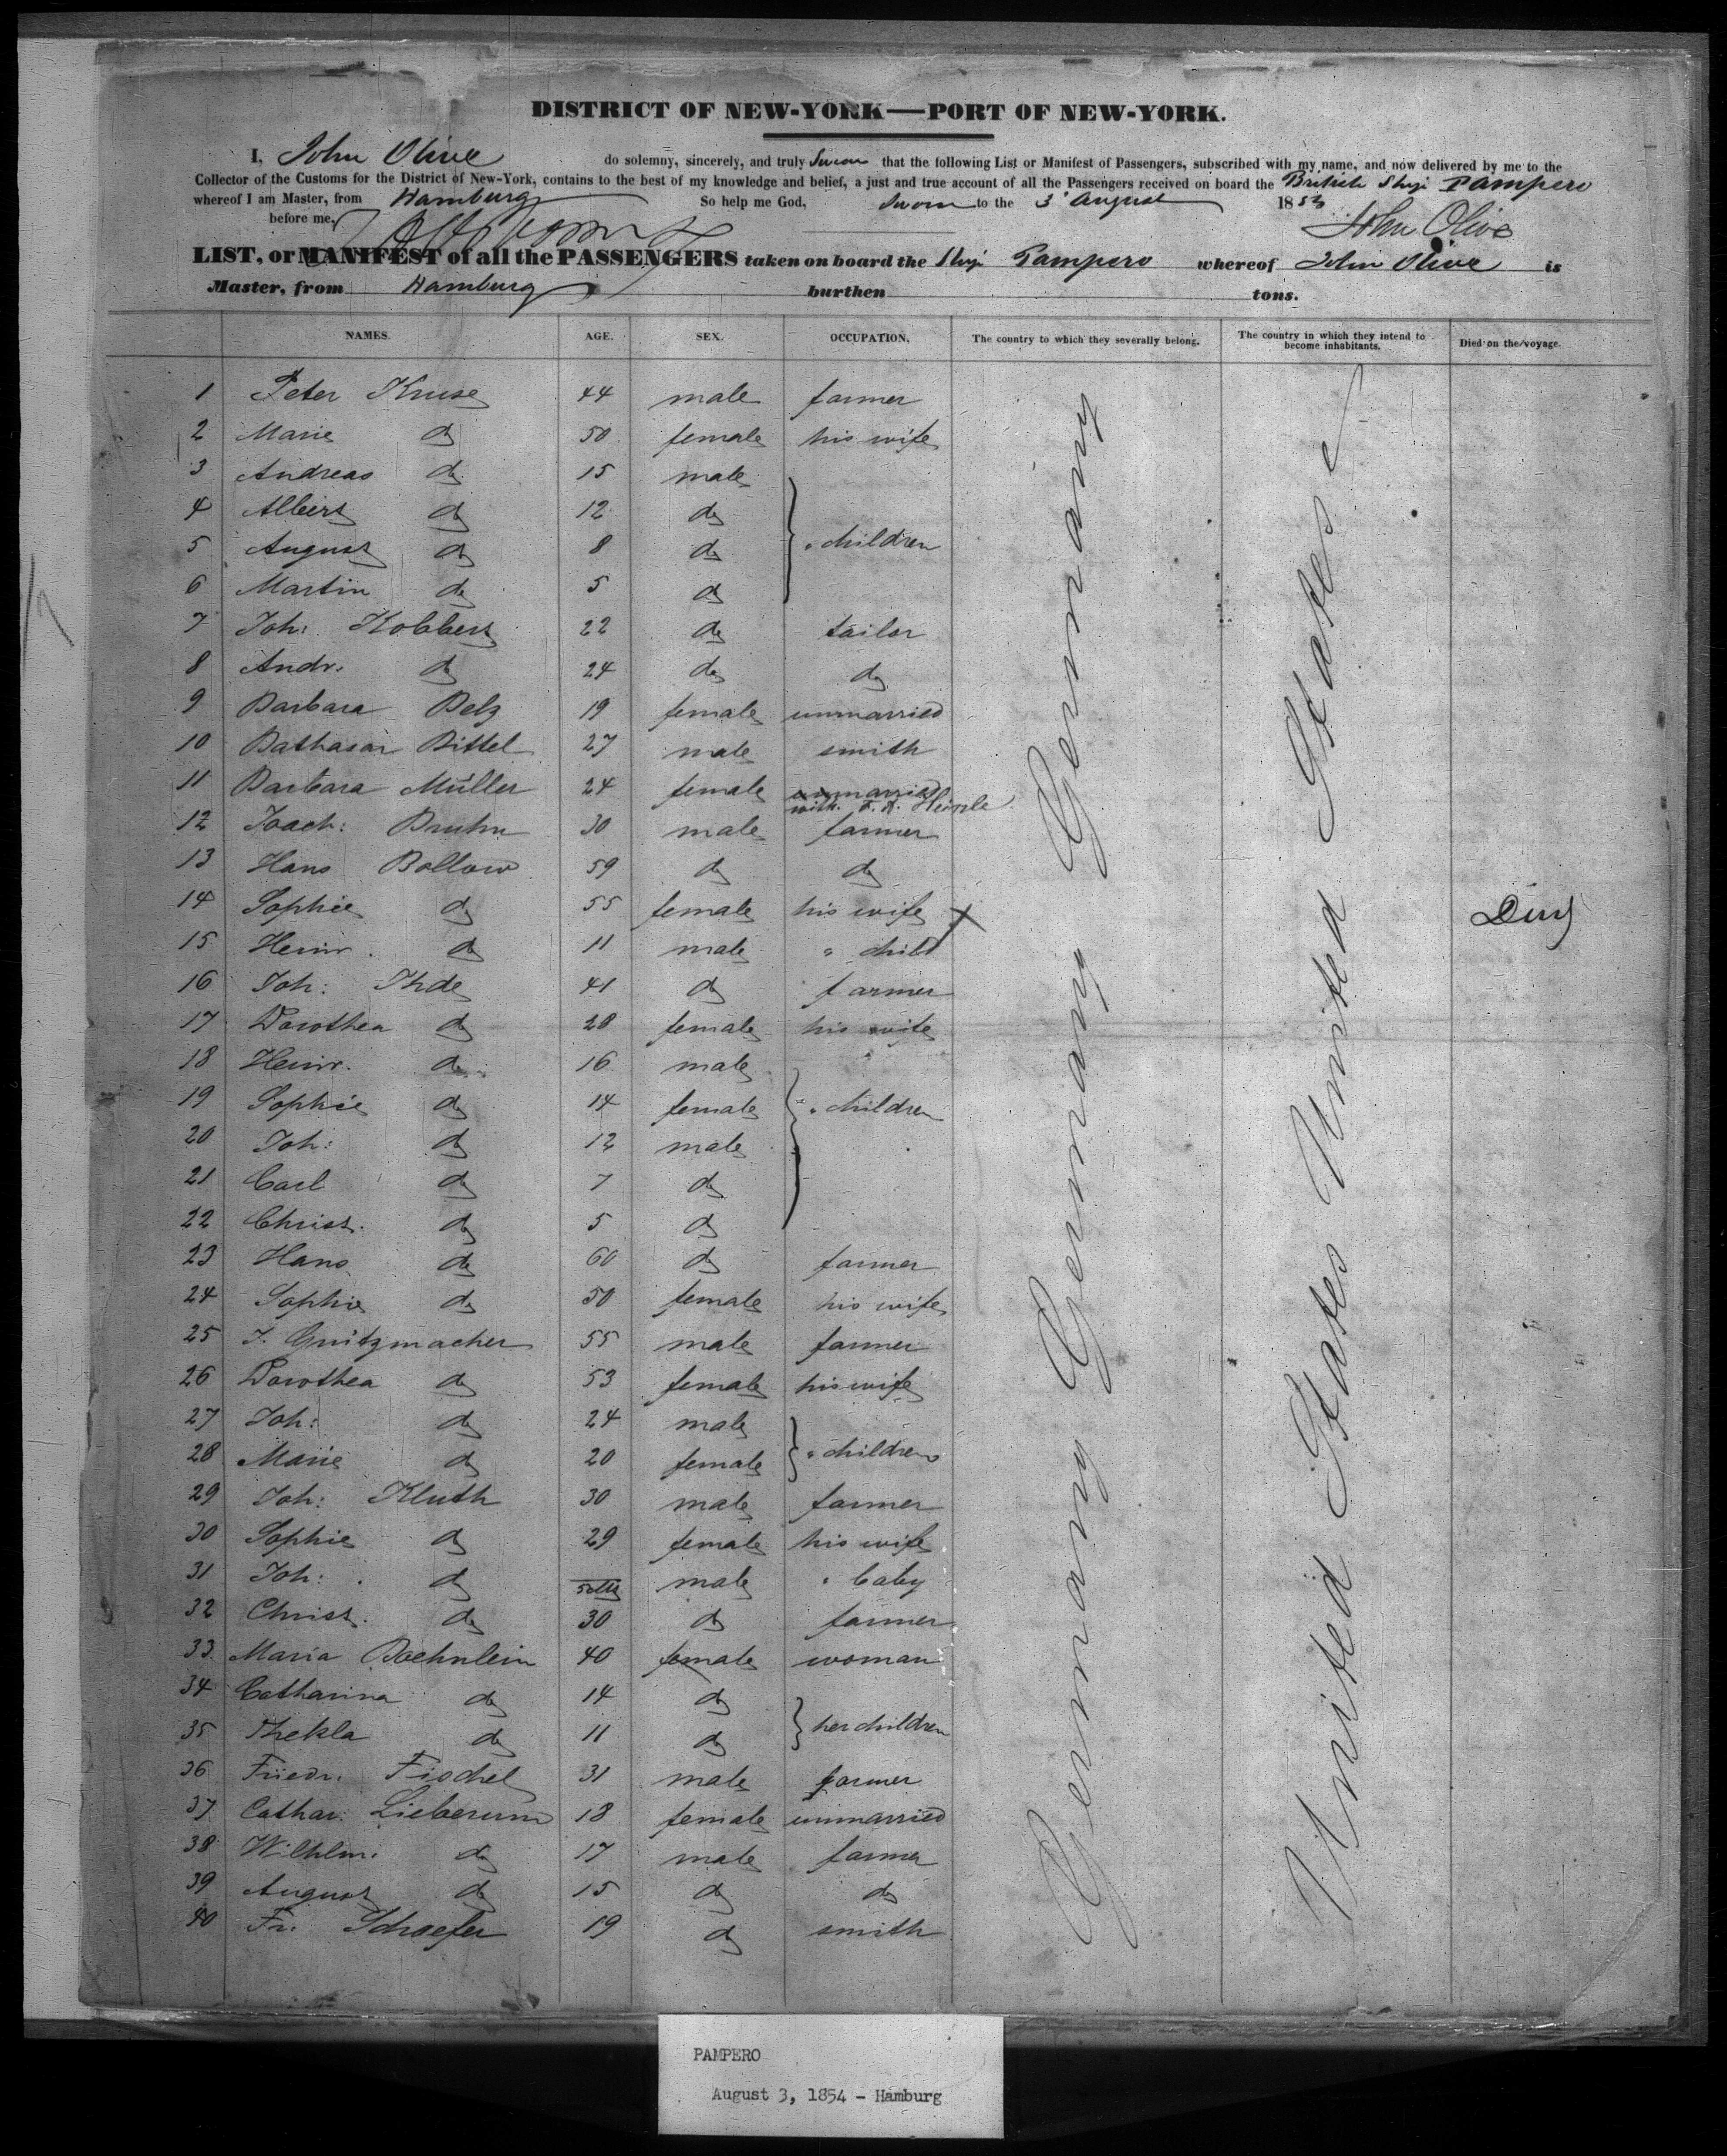 DISTRICT OF NEW-YORK—PORT OF NEW-YORK.
I, John Olive do solemny, sincerely, and truly Swear that the following List or Manifest of Passengers, subscribed with my name, and now delivered by me to the
Collector of the Customs for the District of New-York, contains to the best of my knowledge and belief, a just and true account of all the Passengers received on board the British Ship Pampero
whereof I am Master, from Hamburg So help me God, Sworn to the 3 August 185
before me, John Olive
LIST, or MANIFEST of all the PASSENGERS taken on board the Ship Pampero whereof John Olive is
Master, from Hamburg burthen tons.
NAMES. AGE. SEX. OCCUPATION. The country to which they severally belong. The country in which they intend to become inhabitants. Died on the voyage.
1 Peter Kruse 44 male farmer
2 Marie do 50 female his wife
3 Andreas do 15 male
4 Albert do 12 do
5 August do 8 do " children
6 Martin do 5 do
7 Joh: Kobbert 22 do tailor
8 Andr. do 24 do do
9 Barbara Belz 19 female unmarried
10 Bathasar Bittel 27 male smith
11 Barbara Müller 24 female unmarried
with
12 Joach: Bruhn 30 male farmer
13 Hans Bollow 59 do do
14 Sophie do 55 female his wife X
15 Heinr. do 11 male " child
16 Joh: Thde 41 do farmer
17 Dorothea do 28 female his wife
18 Heinr. do 16 male
19 Sophie do 14 female " children
20 Joh: do 12 male
21 Carl do 7 do
22 Christ. do 5 do
23 Hans do 60 do farmer
24 Sophie do 50 female his wife
25 J. Gnitzmacher 55 male farmer
26 Dorothea do 53 female his wife
27 Joh: do 24 male
28 Marie do 20 female " children
29 Joh: Kluth 30 male farmer
30 Sophie do 29 female his wife
31 Joh: do male " baby
32 Christ. do 30 do farmer
33 Maria Boehnlein 40 female woman
34 Catharina do 14 do
35 Thekla do 11 do her children
36 Friedr. Fischel 31 male farmer
37 Cathar: Lieberum 18 female unmarried
38 Wilhlm. do 17 male farmer
39 August do 15 do do
40 Fr. Schaefer 19 do smith
Germany Germany Germany Germany
United States United States
PAMPERO
August 3, 1854 - Hamburg